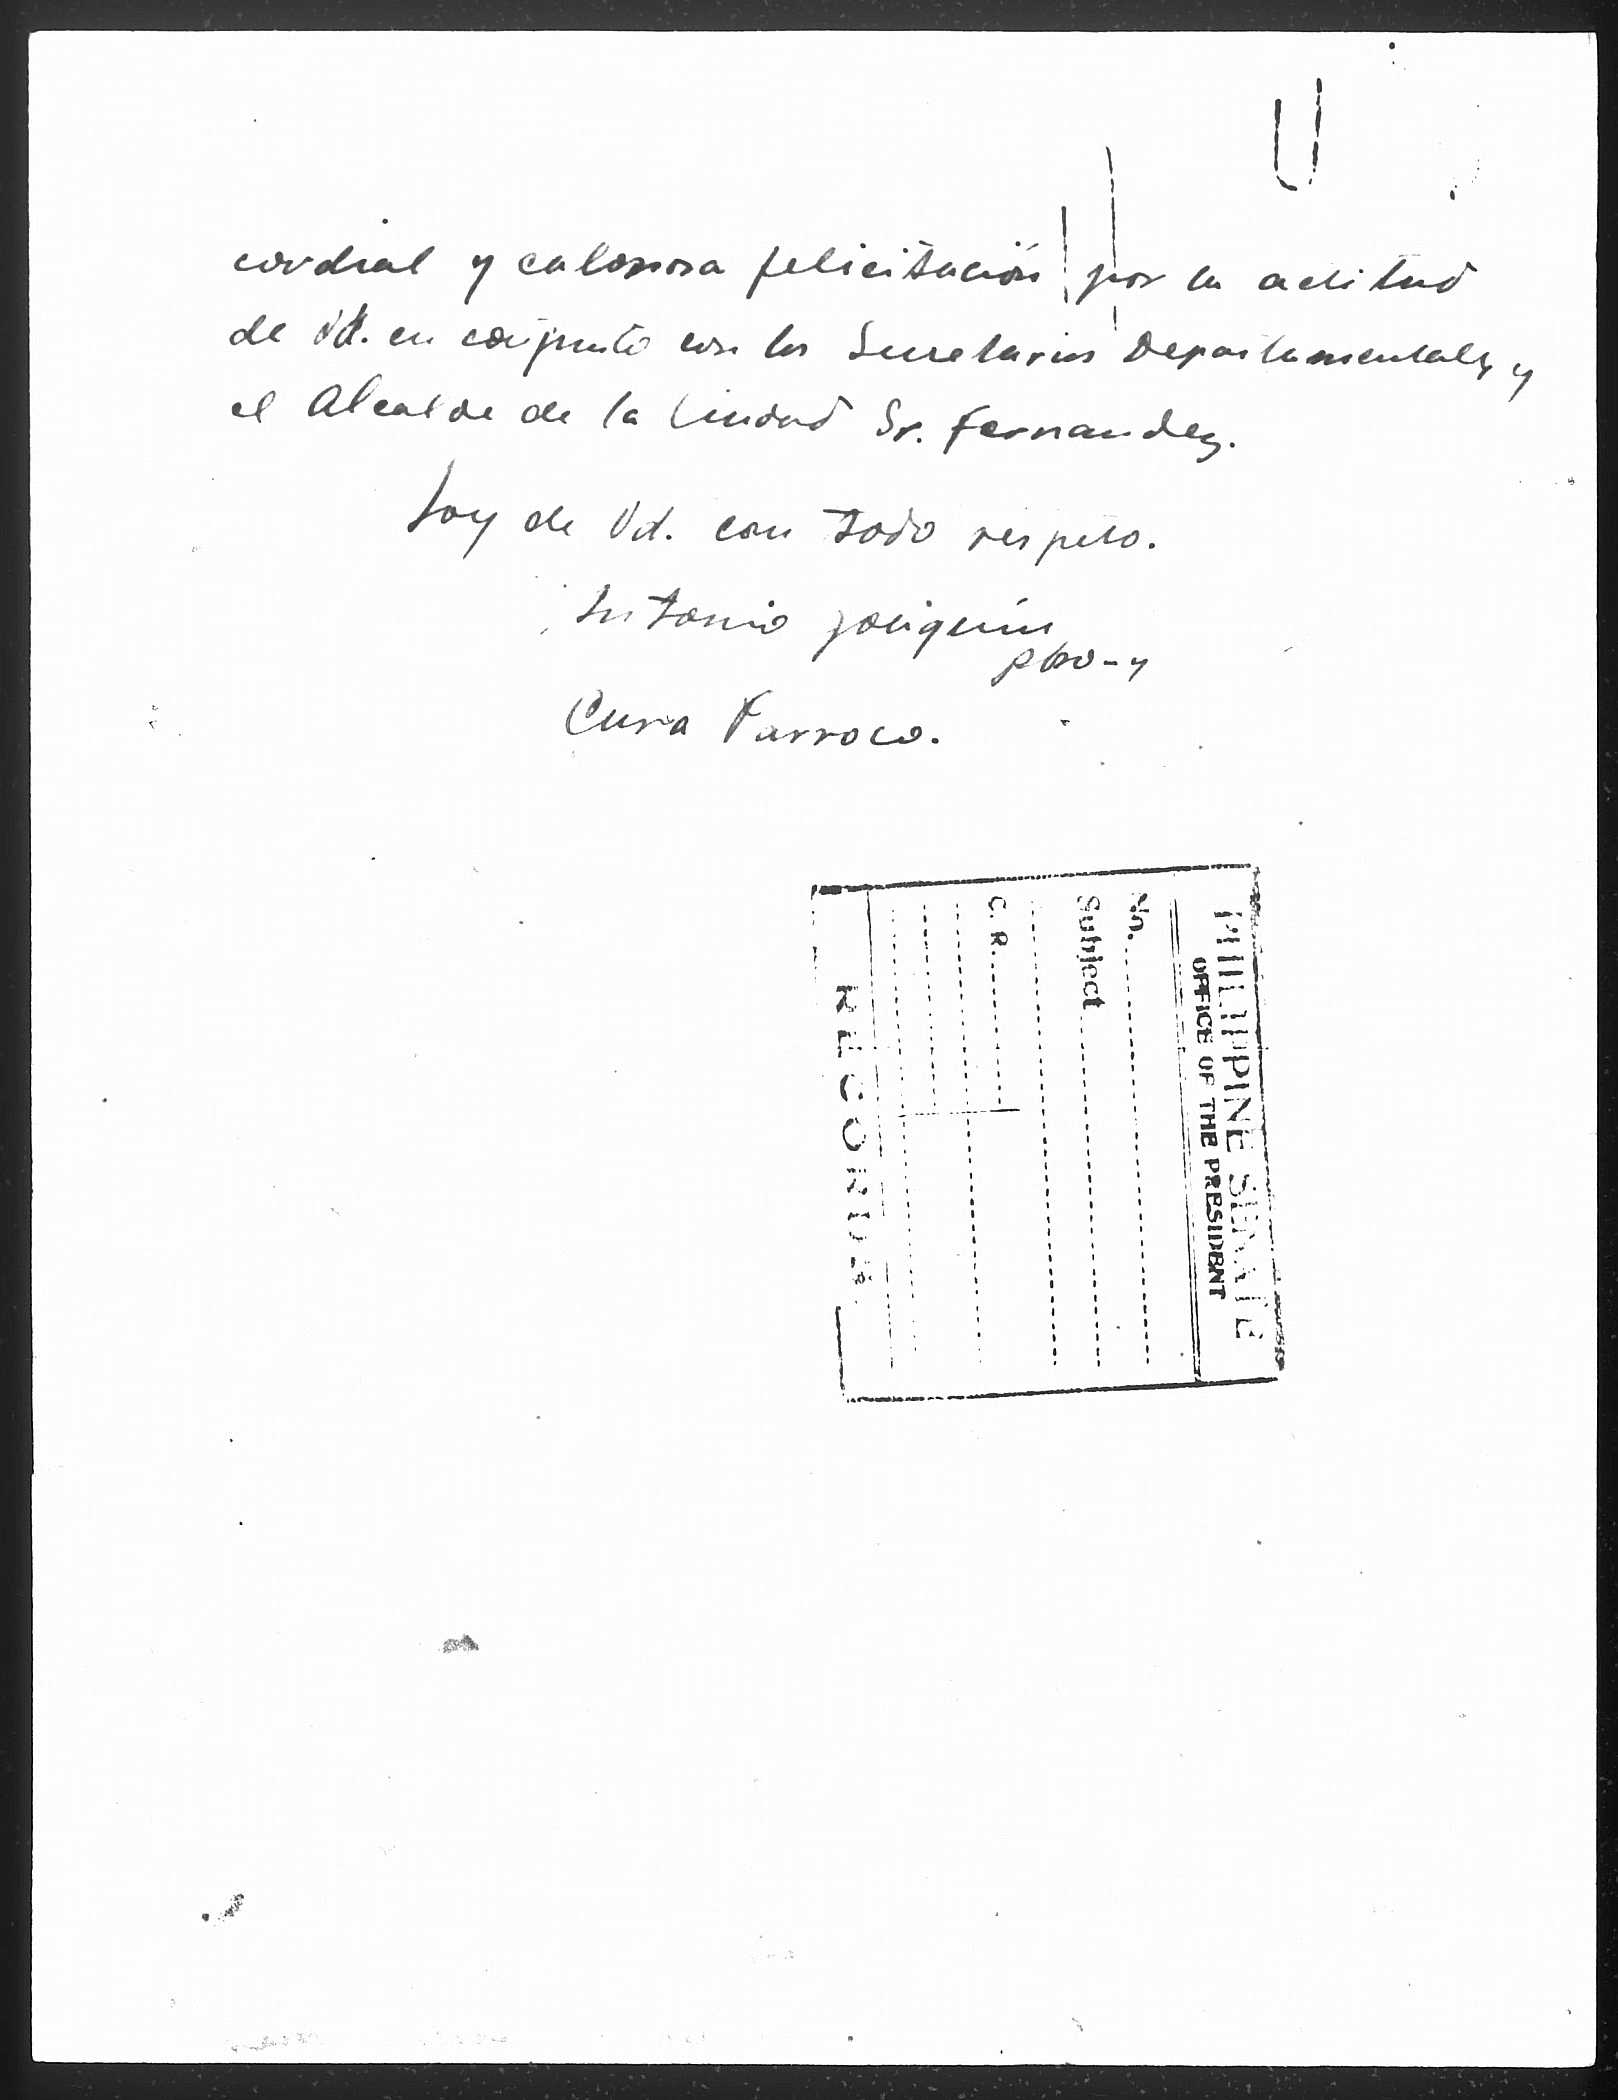 cordial y calorosa felicitación por la actitud
de Vd. en conjunto con los Secretarios Departamentales y
el Alcalde de la Ciudad Sr. Fernandez.
Soy de Vd. con todo respeto.
Antonio
pbro-y
Cura Parroco.
PHILIPPINE SENATE
OFFICE OF THE PRESIDENT
No.
Subject
C. R.
RECORDS